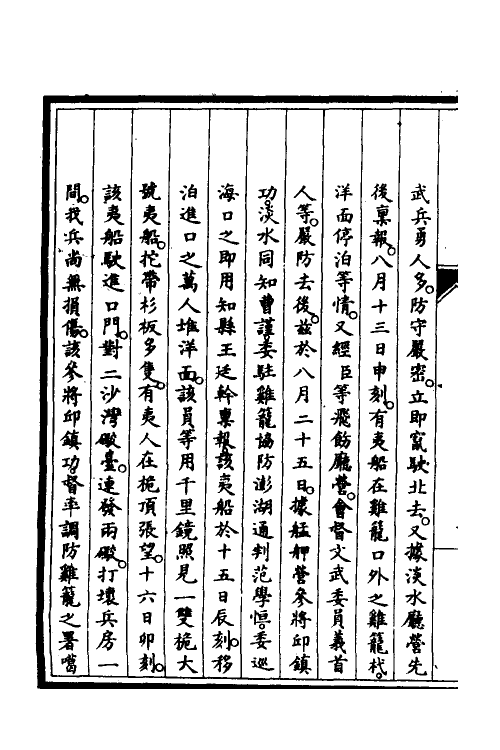 武兵勇人多。防守嚴密。立即竄駛北去。又據淡水廳營先
後稟報。八月十三日申刻。有夷船在雞籠口外之雞籠杙。
洋面停泊等情。又經臣等飛飭廳營。會督文武委員義首
人等。嚴防去後。茲於八月二十五日。據艋舺營參將邱鎮
功。淡水同知曹謹委駐雞籠協防澎湖通判范學恒。委巡
海口之即用知縣王廷幹稟報。該夷船於十五日辰刻。移
泊進口之萬人堆洋面。該員等用千里鏡照見一雙桅大
號夷船。拕帶杉板多隻。有夷人在桅頂張望。十六日卯刻。
該夷船駛進口門。對二沙灣礮臺。連發兩礮。打壞兵房一
間。我兵尚無損傷。該參將邱鎮功。督率調防雞籠之署噹